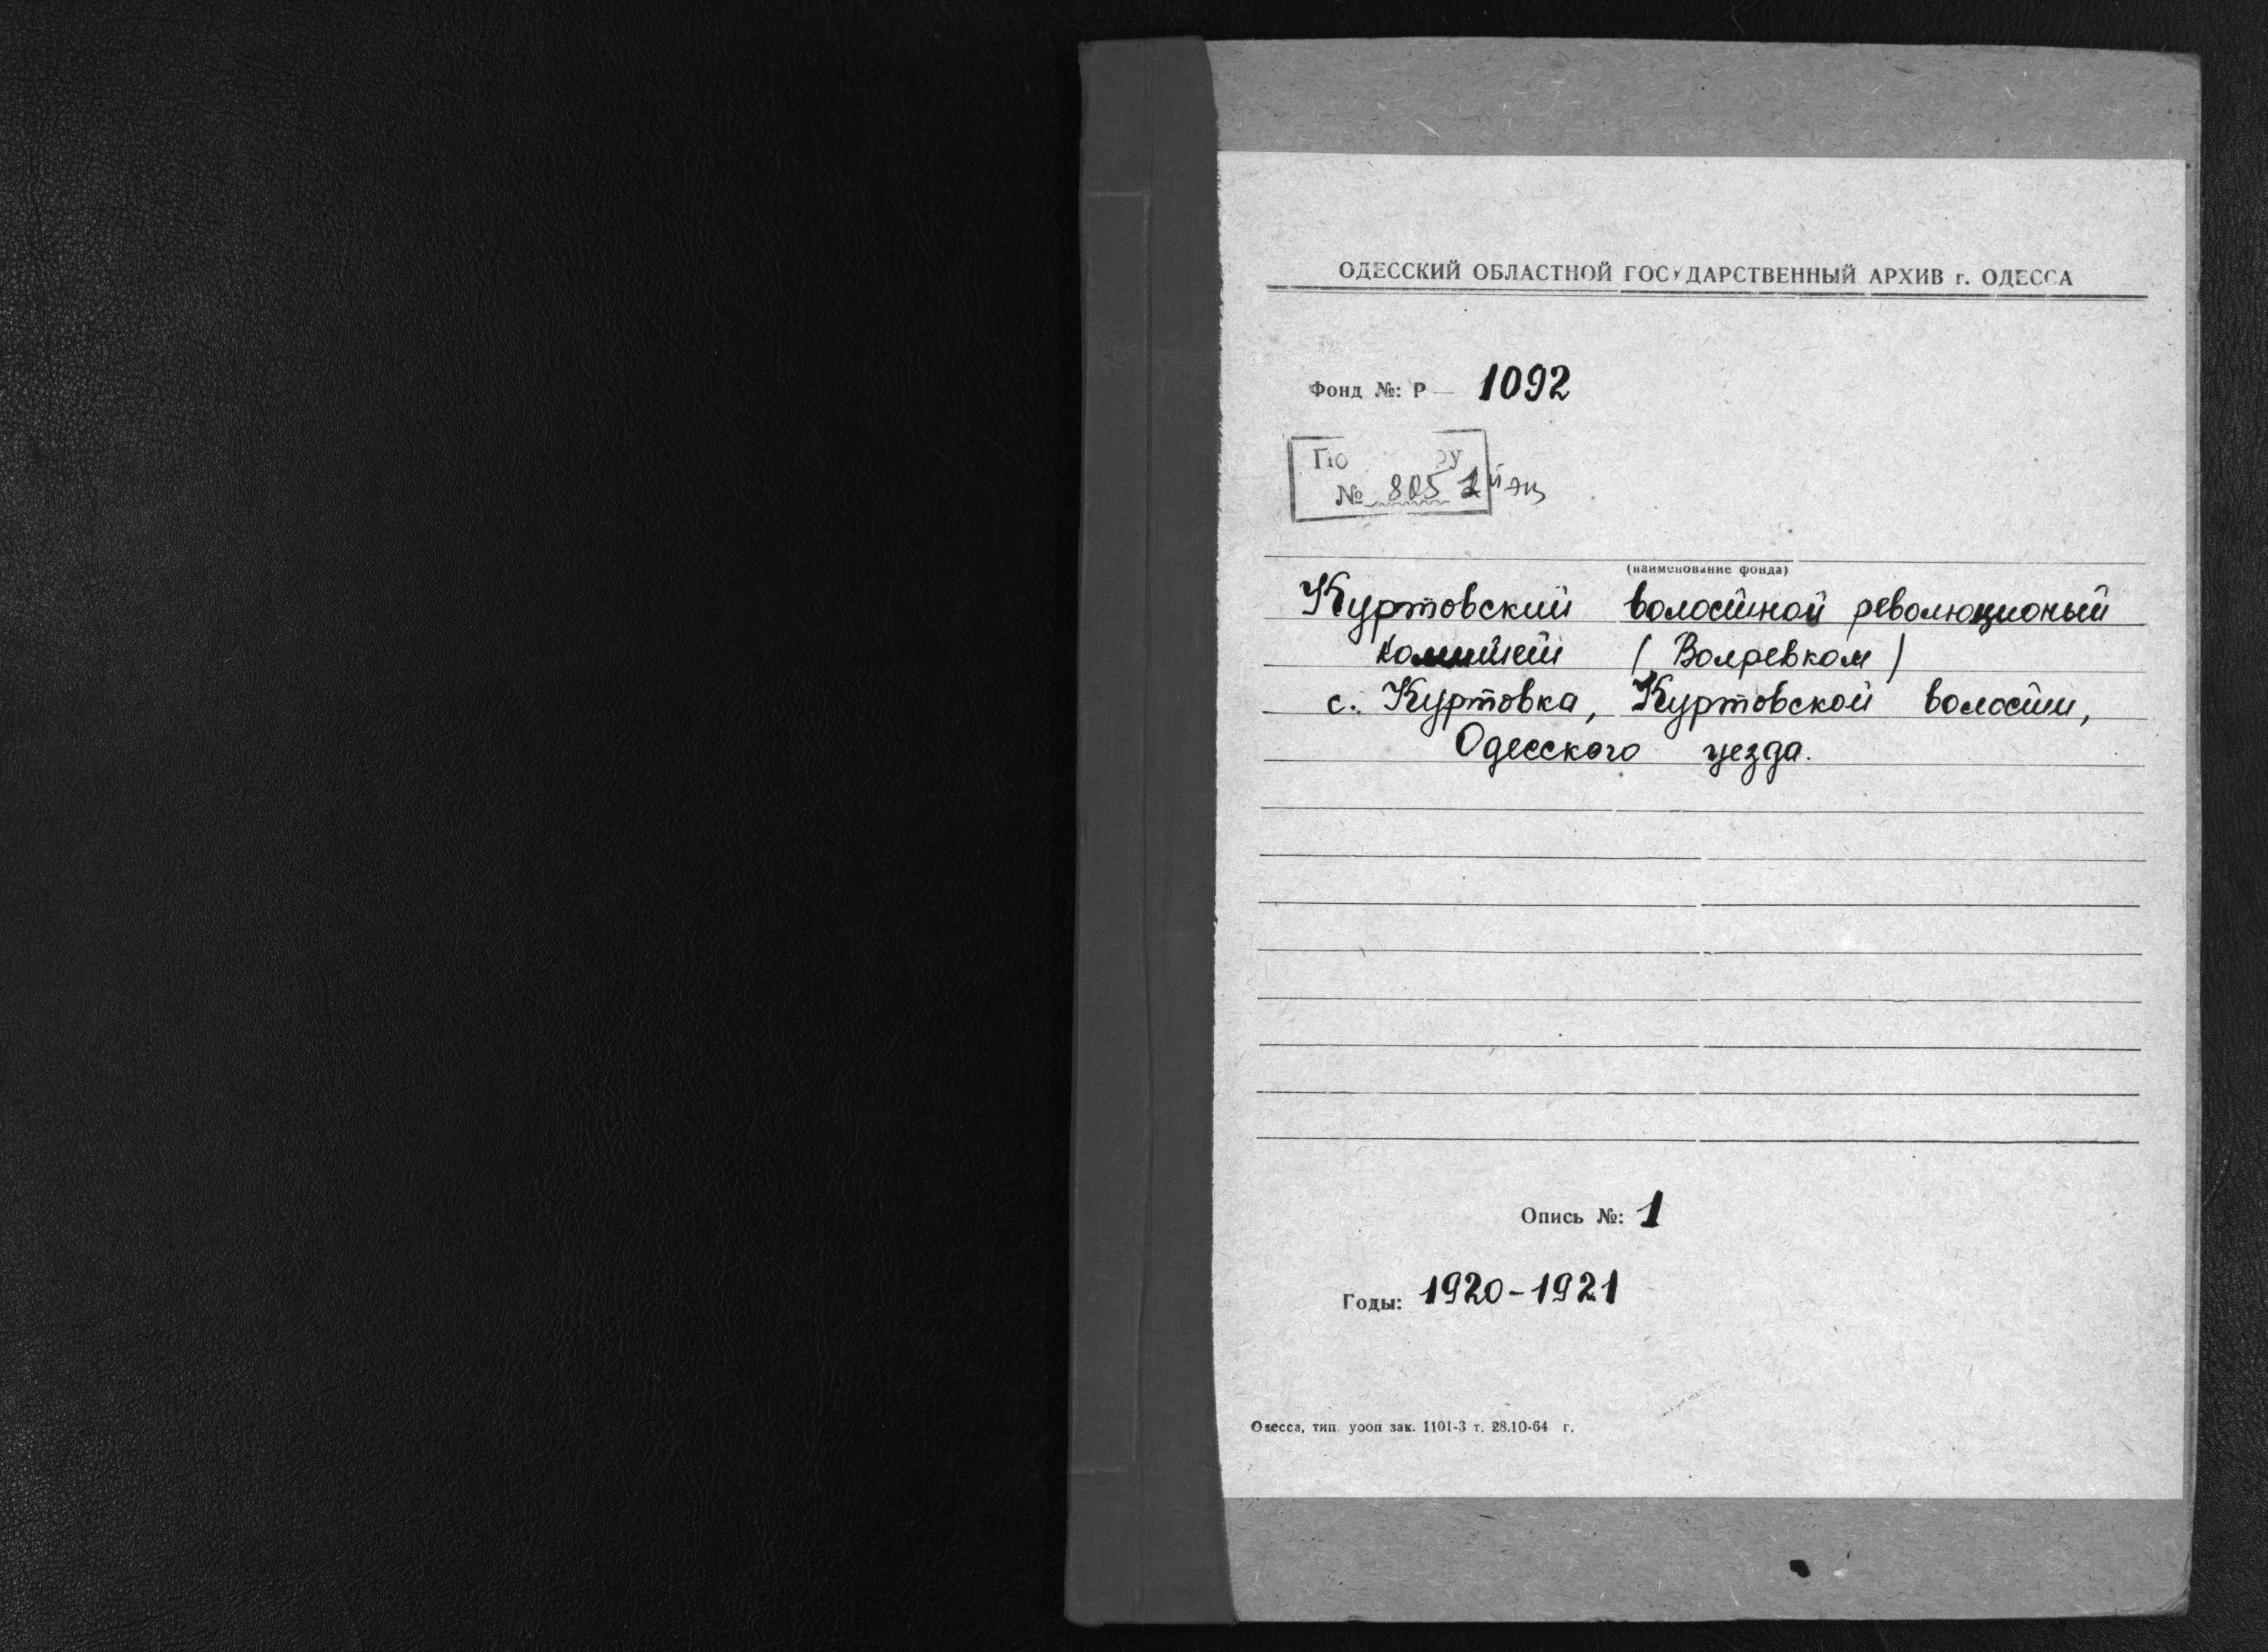 ОДЕССКИЙ ОБЛАСТНОЙ ГОСУДАРСТВЕННЫЙ АРХИВ г. ОДЕССА
Фонд №: Р — 1092
№ 805 1й эк
(наименование фонда)
Куртовский волостной революционый
комитет (Волревком)
с. Куртовка, Куртовской волости,
Одесского уезда.
Опись №: 1
Годы: 1920-1921
Одесса, тип. уооп зак. 1101-3 т. 28.10-64 г.